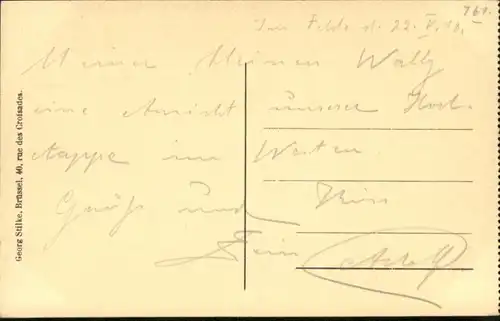 761.
Im Felde d. 22. V. 18.
Meiner kleinen Wally
eine Ansicht unserer
Etappe im Westen
Gruß und Kuss
Dein Adolf
Georg Stilke, Brüssel, 40, rue des Croisades.